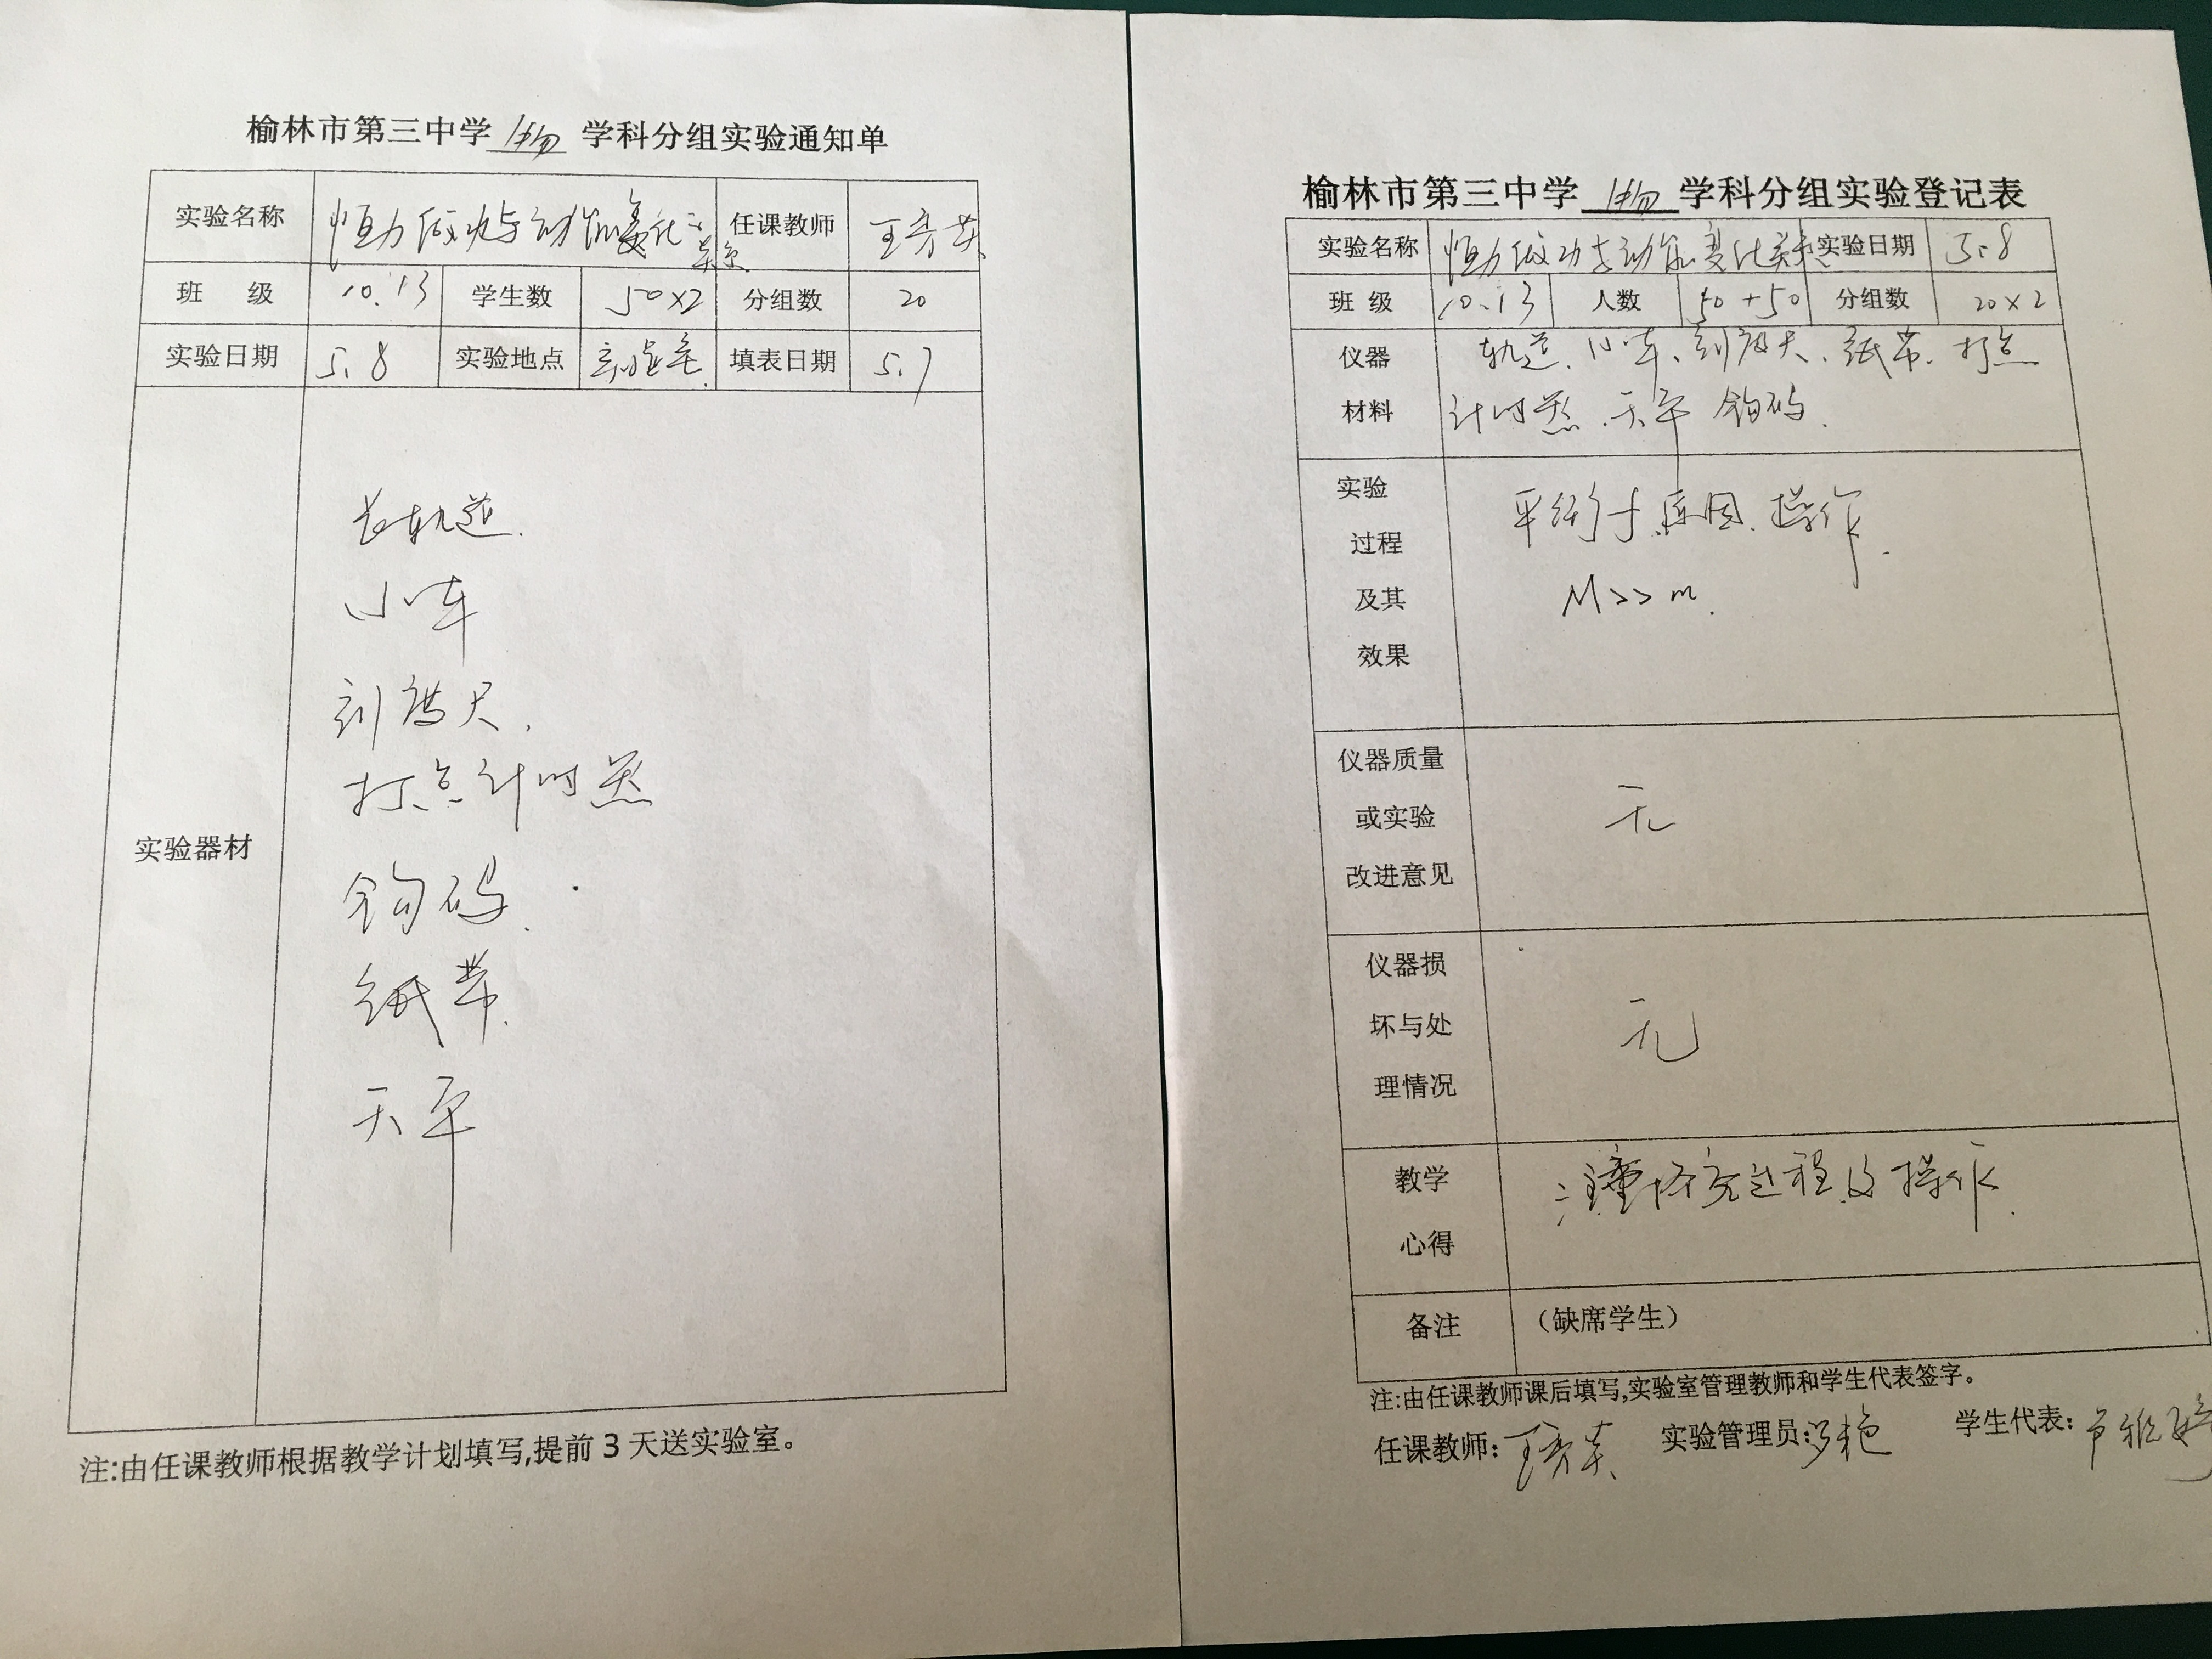 榆林市第三中学 物 学科分组实验通知单
实验名称 恒力做功与动能变化之关系 任课教师 王秀英
班 级 10.13 学生数 50×2 分组数 20
实验日期 5.8 实验地点 实验室. 填表日期 5.7
实验器材
长轨道.
小车
刻度尺.
打点计时器
钩码.
纸带.
天平
注:由任课教师根据教学计划填写,提前3天送实验室。
榆林市第三中学 物 学科分组实验登记表
实验名称 恒力做功与动能变化关系 实验日期 5.8
班 级 10.13 人数 50+50 分组数 20×2
仪器
材料
轨道.小车、刻度尺、纸带.打点
计时器.天平 钩码.
实验
过程
及其
效果
平衡 原因.操作.
M>>m.
仪器质量
或实验
改进意见
无
仪器损
坏与处
理情况
无
教学
心得
注重探究过程及操作.
备注 （缺席学生）
注:由任课教师课后填写,实验室管理教师和学生代表签字。
任课教师: 王秀英 实验管理员: 学生代表: